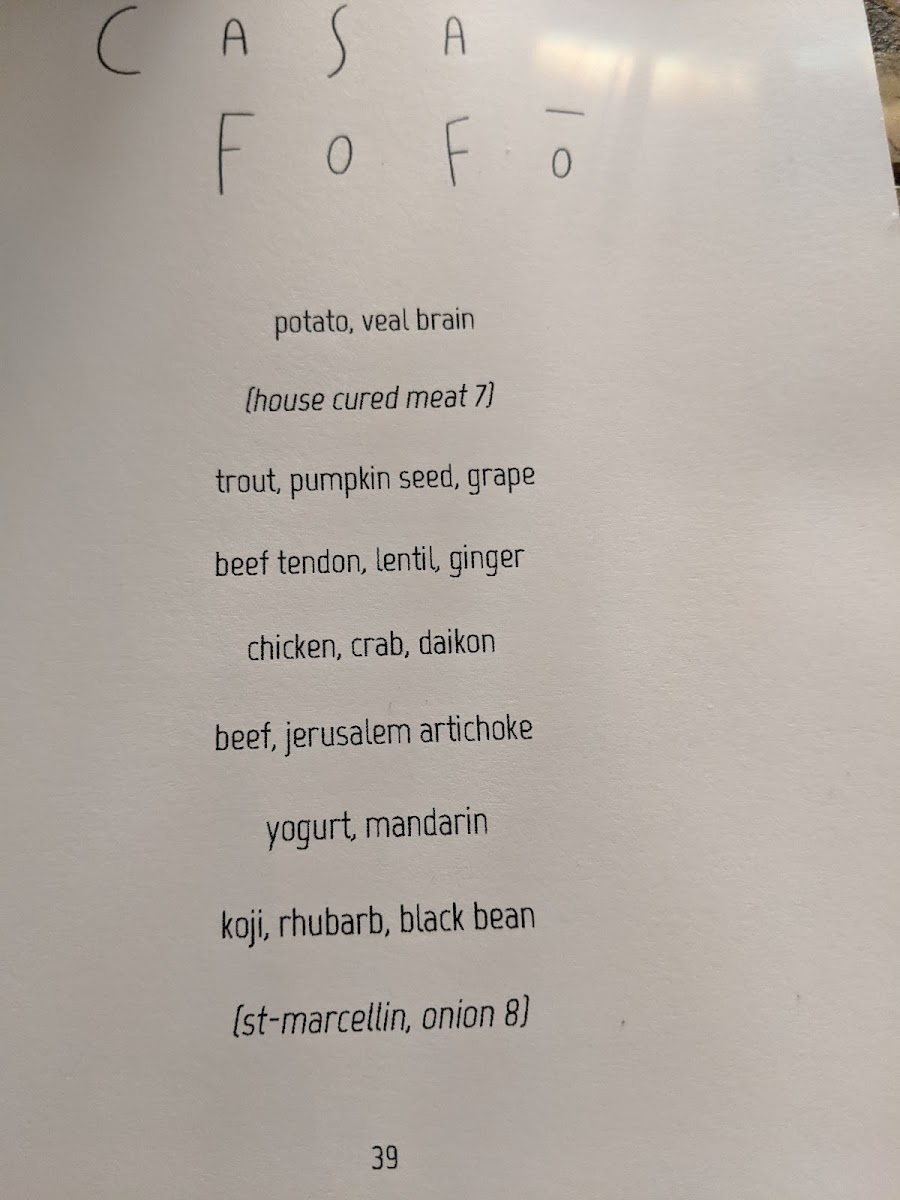 C A S A
F O F Ō
potato, veal brain
(house cured meat 7)
trout, pumpkin seed, grape
beef tendon, lentil, ginger
chicken, crab, daikon
beef, jerusalem artichoke
yogurt, mandarin
koji, rhubarb, black bean
(st-marcellin, onion 8)
39